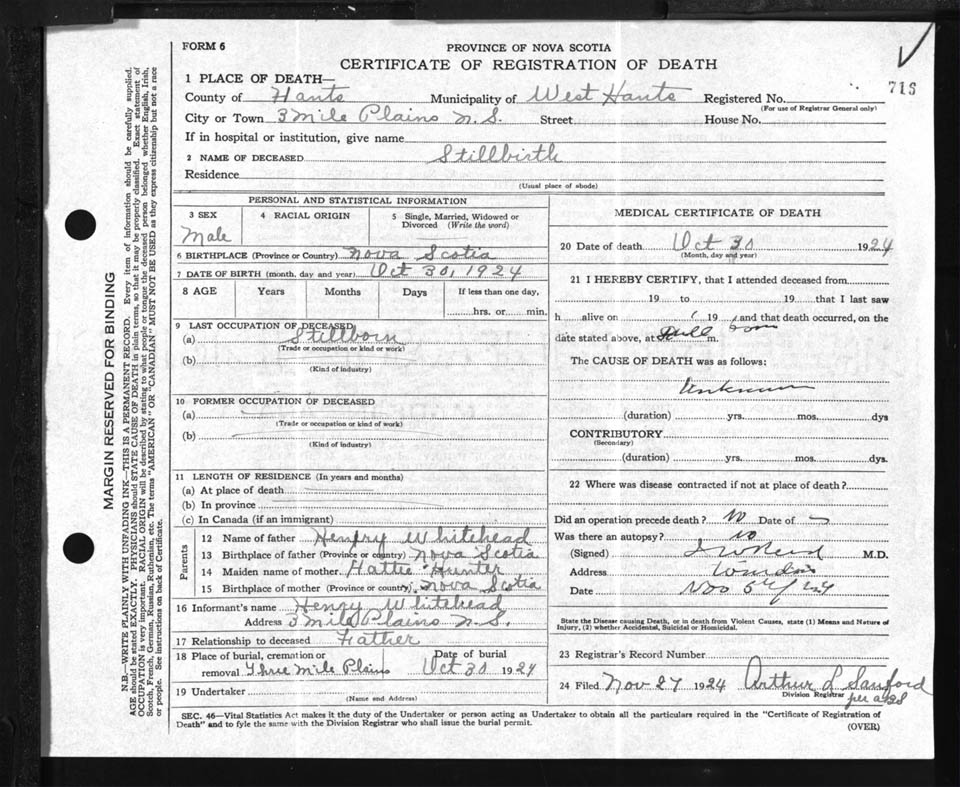 FORM 6
PROVINCE OF NOVA SCOTIA
CERTIFICATE OF REGISTRATION OF DEATH
716
1 PLACE OF DEATH—
County of Hants Municipality of West Hants Registered No.
(For use of Registrar General only)
City or Town 3 Mile Plains N.S. Street House No.
If in hospital or institution, give name
2 NAME OF DECEASED Stillbirth
Residence
(Usual place of abode)
PERSONAL AND STATISTICAL INFORMATION
3 SEX 4 RACIAL ORIGIN 5 Single, Married, Widowed or Divorced (Write the word)
Male
6 BIRTHPLACE (Province or Country) Nova Scotia
7 DATE OF BIRTH (month, day and year) Oct 30, 1924
8 AGE Years Months Days If less than one day,
hrs. or min.
9 LAST OCCUPATION OF DECEASED
(a) Stillborn
(Trade or occupation or kind or work)
(b)
(Kind of industry)
10 FORMER OCCUPATION OF DECEASED
(a)
(Trade or occupation or kind of work)
(b)
(Kind of industry)
11 LENGTH OF RESIDENCE (In years and months)
(a) At place of death
(b) In province
(c) In Canada (if an immigrant)
Parents
12 Name of father Henry Whitehead
13 Birthplace of father (Province or country) Nova Scotia
14 Maiden name of mother Hattie Hunter
15 Birthplace of mother (Province or country) Nova Scotia
16 Informant's name Henry Whitehead
Address 3 Mile Plains N.S.
17 Relationship to deceased Father
18 Place of burial, cremation or Date of burial
removal Three Mile Plains Oct 30 1924
19 Undertaker
(Name and Address)
MEDICAL CERTIFICATE OF DEATH
20 Date of death Oct 30 1924
(Month, day and year)
21 I HEREBY CERTIFY, that I attended deceased from
19 to 19 that I last saw
h alive on 19 and that death occurred, on the
date stated above, at Still born m.
The CAUSE OF DEATH was as follows:
Unknown
(duration) yrs. mos. dys
CONTRIBUTORY
(Secondary)
(duration) yrs. mos. dys.
22 Where was disease contracted if not at place of death?
Did an operation precede death? No Date of
Was there an autopsy? No
(Signed) M.D.
Address
Date Nov 5th/24
State the Disease causing Death, or in death from Violent Causes, state (1) Means and Nature of
Injury, (2) whether Accidental, Suicidal or Homicidal.
23 Registrar's Record Number
24 Filed Nov 27 1924 Arthur L Sanford
Division Registrar
per
SEC. 46—Vital Statistics Act makes it the duty of the Undertaker or person acting as Undertaker to obtain all the particulars required in the "Certificate of Registration of
Death" and to fyle the same with the Division Registrar who shall issue the burial permit.
(OVER)
MARGIN RESERVED FOR BINDING
N.B.—WRITE PLAINLY, WITH UNFADING INK—THIS IS A PERMANENT RECORD. Every item of information should be carefully supplied.
AGE should be stated EXACTLY. PHYSICIANS should STATE CAUSE OF DEATH in plain terms, so that it may be properly classified. Exact statement of
OCCUPATION is very important. RACIAL ORIGIN will be described by stating to what people or tongue the deceased person belonged whether English, Irish,
Scotch, French, German, Russian, Ruthenian, etc. The terms "AMERICAN" OR "CANADIAN" MUST NOT BE USED as they express citizenship but not a race
or people. See instructions on back of Certificate.